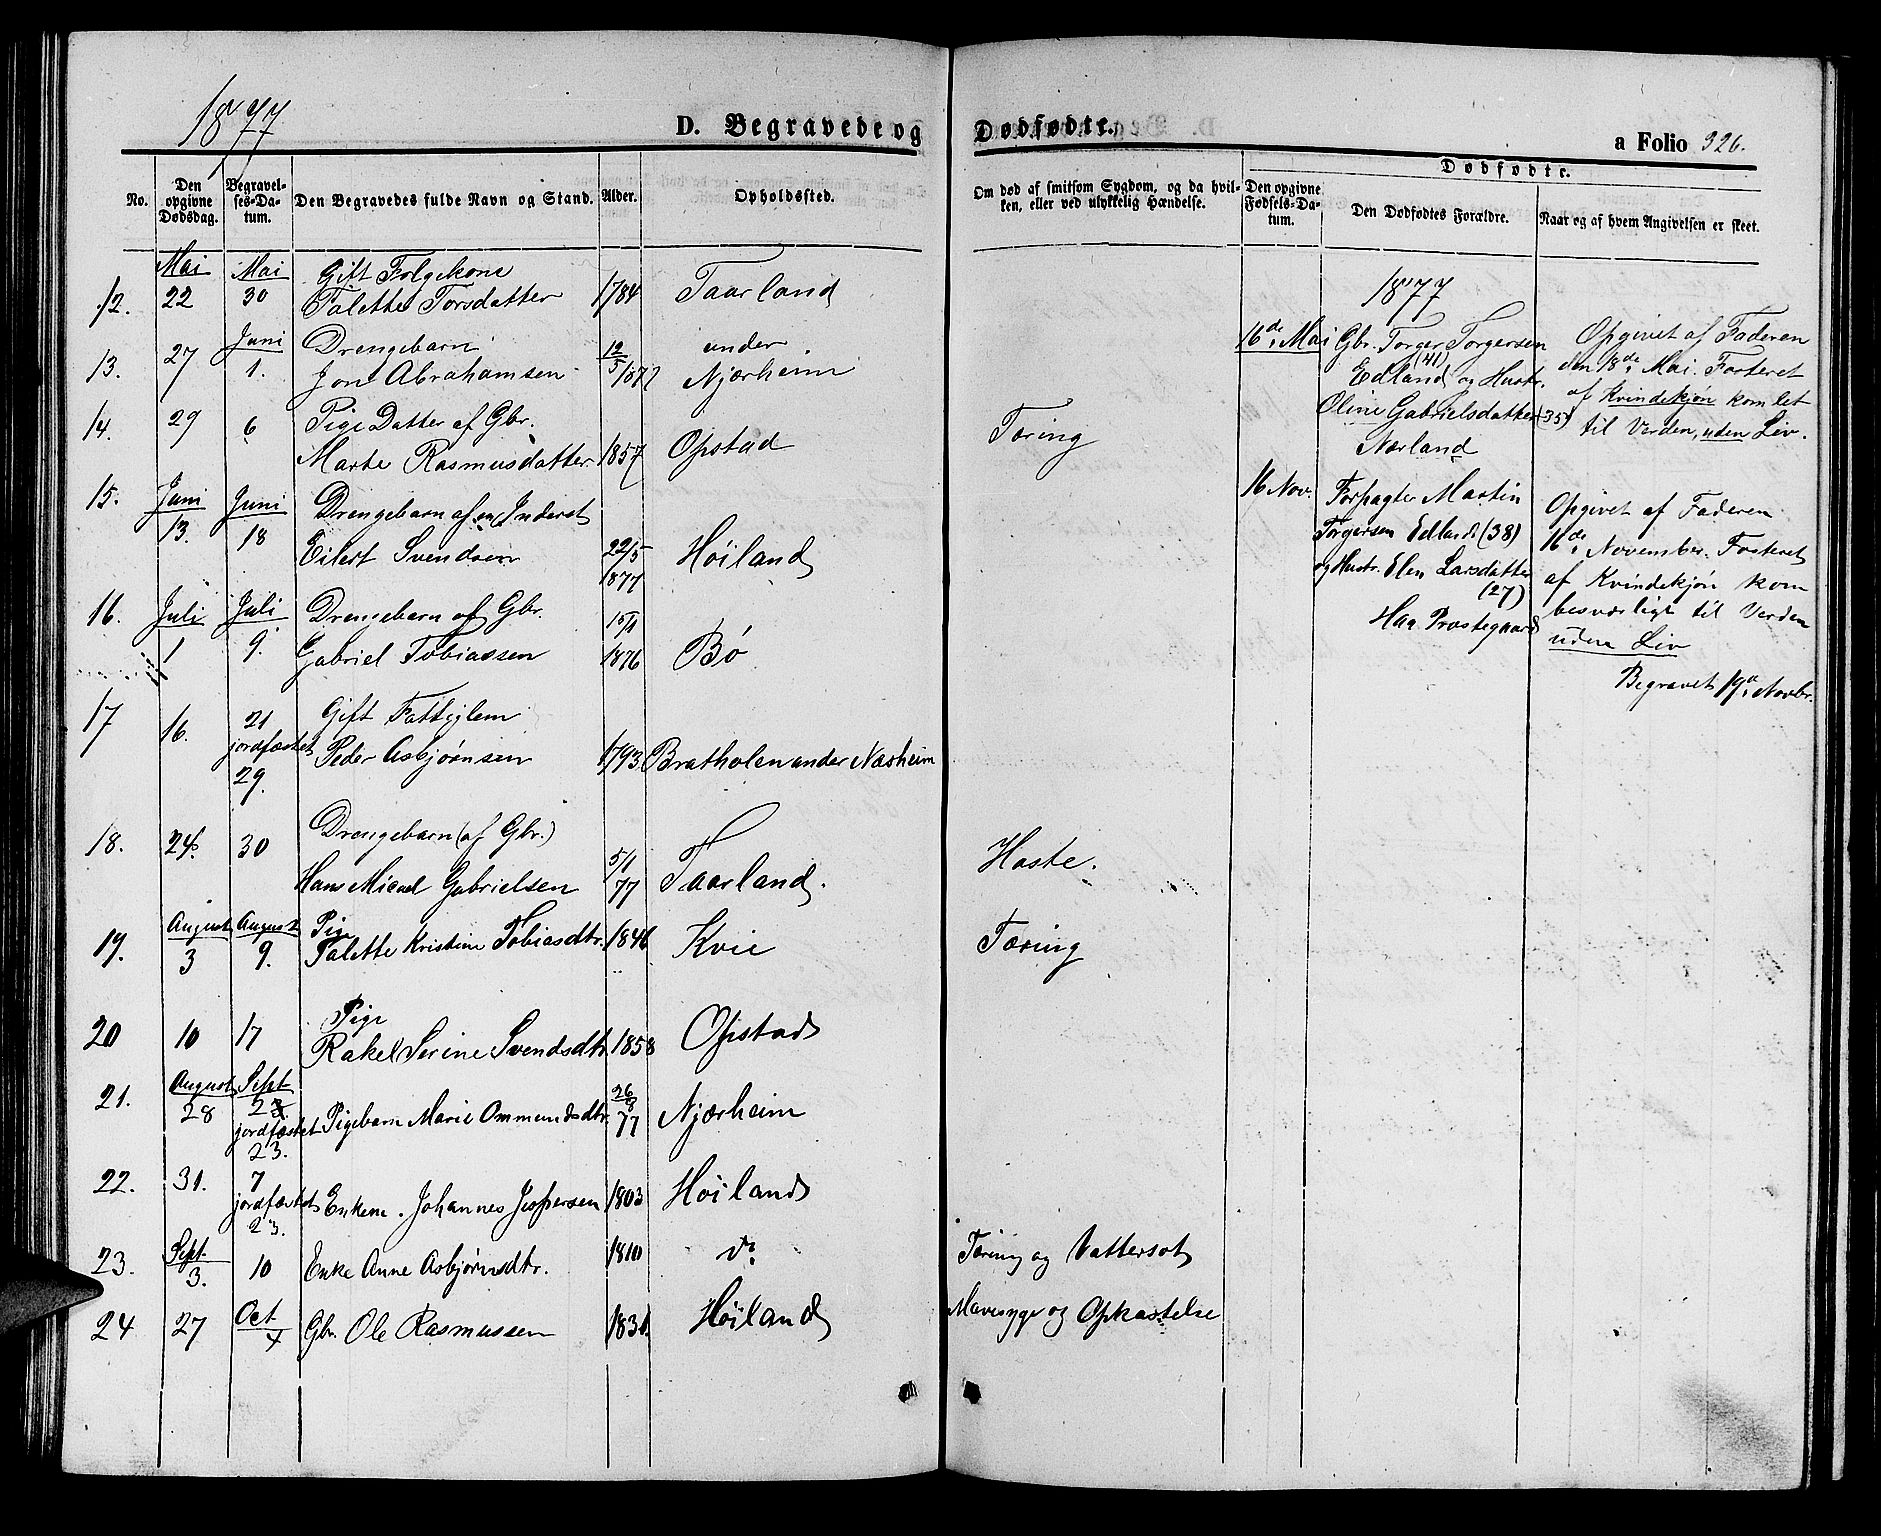 1877
D. Begravede og
No.
Den opgivne Dødsdag.
Begravelses-Datum.
Den Begravedes fulde Navn og Stand.
Alder.
Opholdssted.
Mai Mai Gift Folgekone
12. 22 30 Talette Torsdatter 1784 Taarland
Juni Drengebarn 12/5 under
13. 27 1. Jon Abrahamsen 1877 Njærheim
14. 29 6 Pige Datter af Gbr.
Marte Rasmusdatter 1857 Opstad
15. Juni Juni Drengebarn af en Inderst
13. 18 Eilert Svendsen 22/5 1877 Høiland
16. Juli Juli Drengebarn af Gbr. 15/1
1 9. Gabriel Tobiassen 1876 Bø
17 16. 21 Gift Fattiglem
jordfæstet Peder Asbjørnsen 1793. Bratholen under Næsheim
29.
18. 24. 30 Drengebarn (af Gbr.)
Hans Micael Gabrielsen 5/1 77 Taarland.
19. August August Pige
3 9. Talette Kristine Tobiasdtr. 1846 Kvie
20 10 17 Pige
Rakel Serine Svendsdtr. 1858 Opstad
21. August Sept
28 jordfæstet Pigebarn Marie Ommundsdtr. 26/8 77 Njærheim
23.
22. 31. 7
jordfæstet Enkem. Johannes Jespersen 1803 Høiland
23.
23. Sept. 3. 10 Enke Anne Asbjørnsdtr. 1810 do
24 27 Oct 4 Gbr. Ole Rasmussen 1831. Høiland
Dødfødte.
a Folio 326.
Om død af smitsom Sygdom, og da hvilken, eller ved ulykkelig Hændelse.
Dødfødte.
Den opgivne Fødsels-Datum.
Den Dødfødtes Forældre.
Naar og af hvem Angivelsen er skeet.
Tæring
Haste.
Tæring
Tæring og Vattersot
Mavesyge og Opkastelse
1877
16de Mai Gbr. Torger Torgersen
(41)
Edland og Hustr.
Oline Gabrielsdatter (35)
Nærland
Opgivet af Faderen
den 18de Mai. Fosteret
af Kvindekjøn kom let
til Verden, uden Liv.
16 Nov. Forpagter Martin
Torgersen Edland (38)
og Hustr. Elen Larsdatter
(27)
Haa Præstegaard
Opgivet af Faderen
16de November. Fosteret
af Kvindekjøn kom
besværligt til Verden
uden Liv
Begravet 19de Novbr.